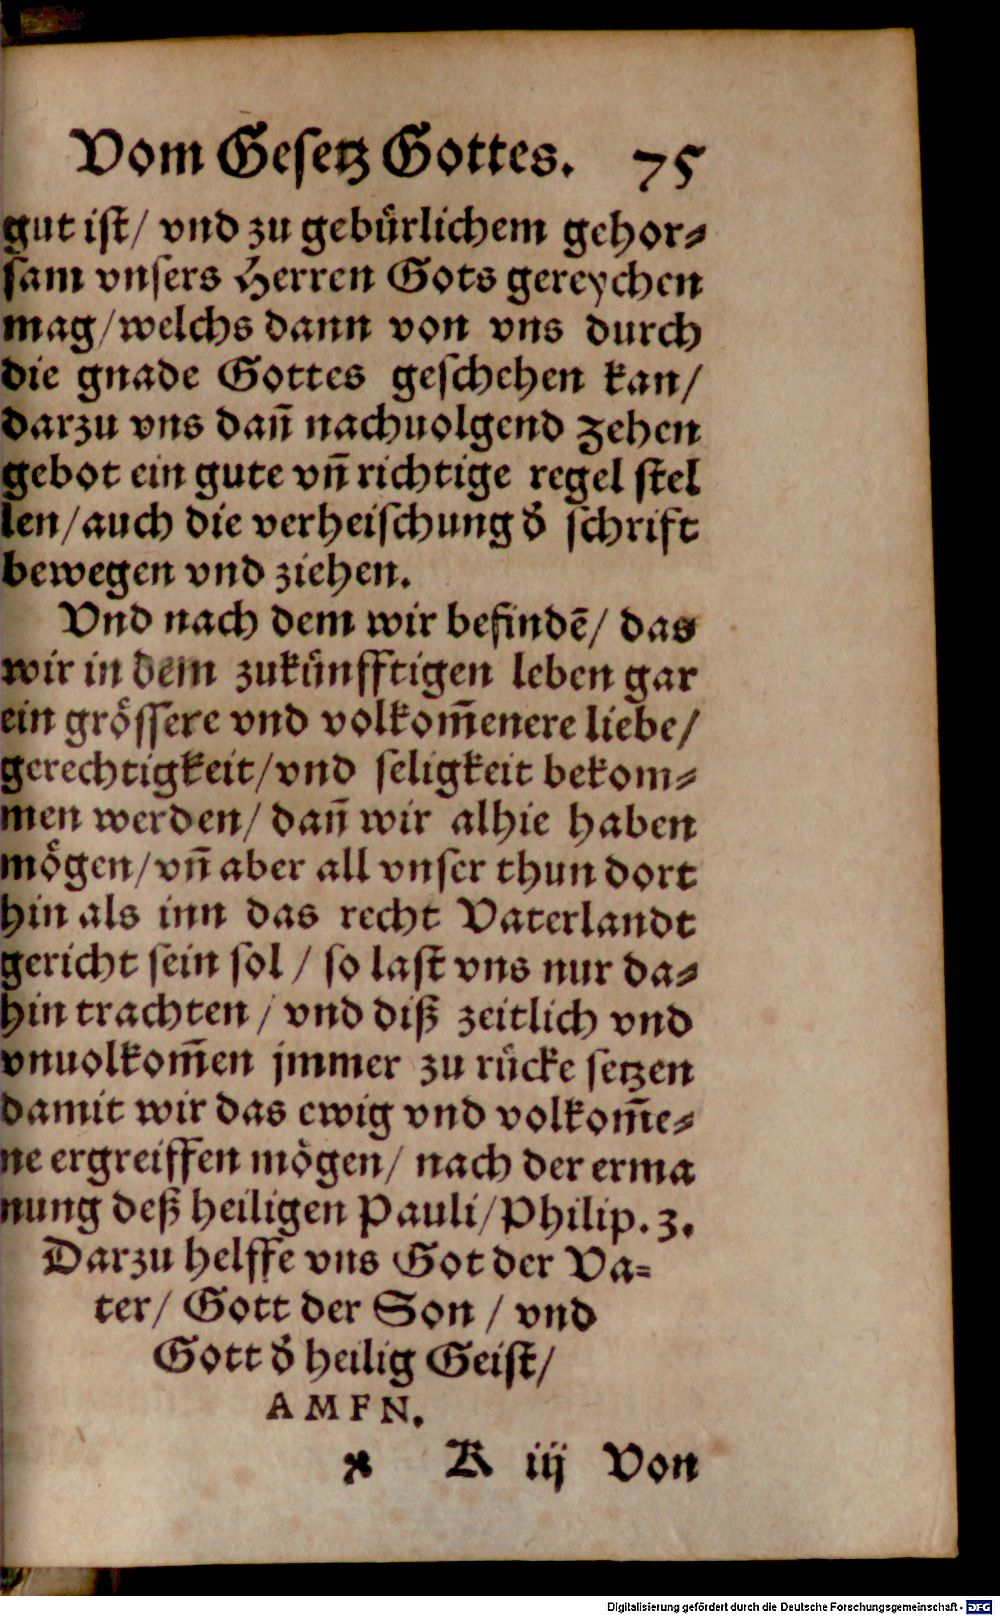 Vom Gesetz Gottes. 75
gut ist/ vnd zu gebürlichem gehor⸗
sam vnsers Herren Gots gereychen
mag/welchs dann von vns durch
die gnade Gottes geschehen kan/
darzu vns dañ nachuolgend zehen
gebot ein gute vñ richtige regel stel
len/auch die verheischung d̾ schrift
bewegen vnd ziehen.
Vnd nach dem wir befindē/ das
wir in dem zukünfftigen leben gar
ein grössere vnd volkom̃enere liebe/
gerechtigkeit/vnd seligkeit bekom⸗
men werden/ dañ wir alhie haben
mögen/vñ aber all vnser thun dort
hin als inn das recht Vaterlandt
gericht sein sol / so last vns nur da⸗
hin trachten / vnd diß zeitlich vnd
vnuolkom̃en jmmer zu rücke setzen
damit wir das ewig vnd volkom̃e⸗
ne ergreiffen mögen/ nach der erma
nung deß heiligen Pauli/Philip. 3.
Darzu helffe vns Got der Va⸗
ter/ Gott der Son / vnd
Gott d̾ heilig Geist/
AMEN.
K iij Von
Digitalisierung gefördert durch die Deutsche Forschungsgemeinschaft - DFG